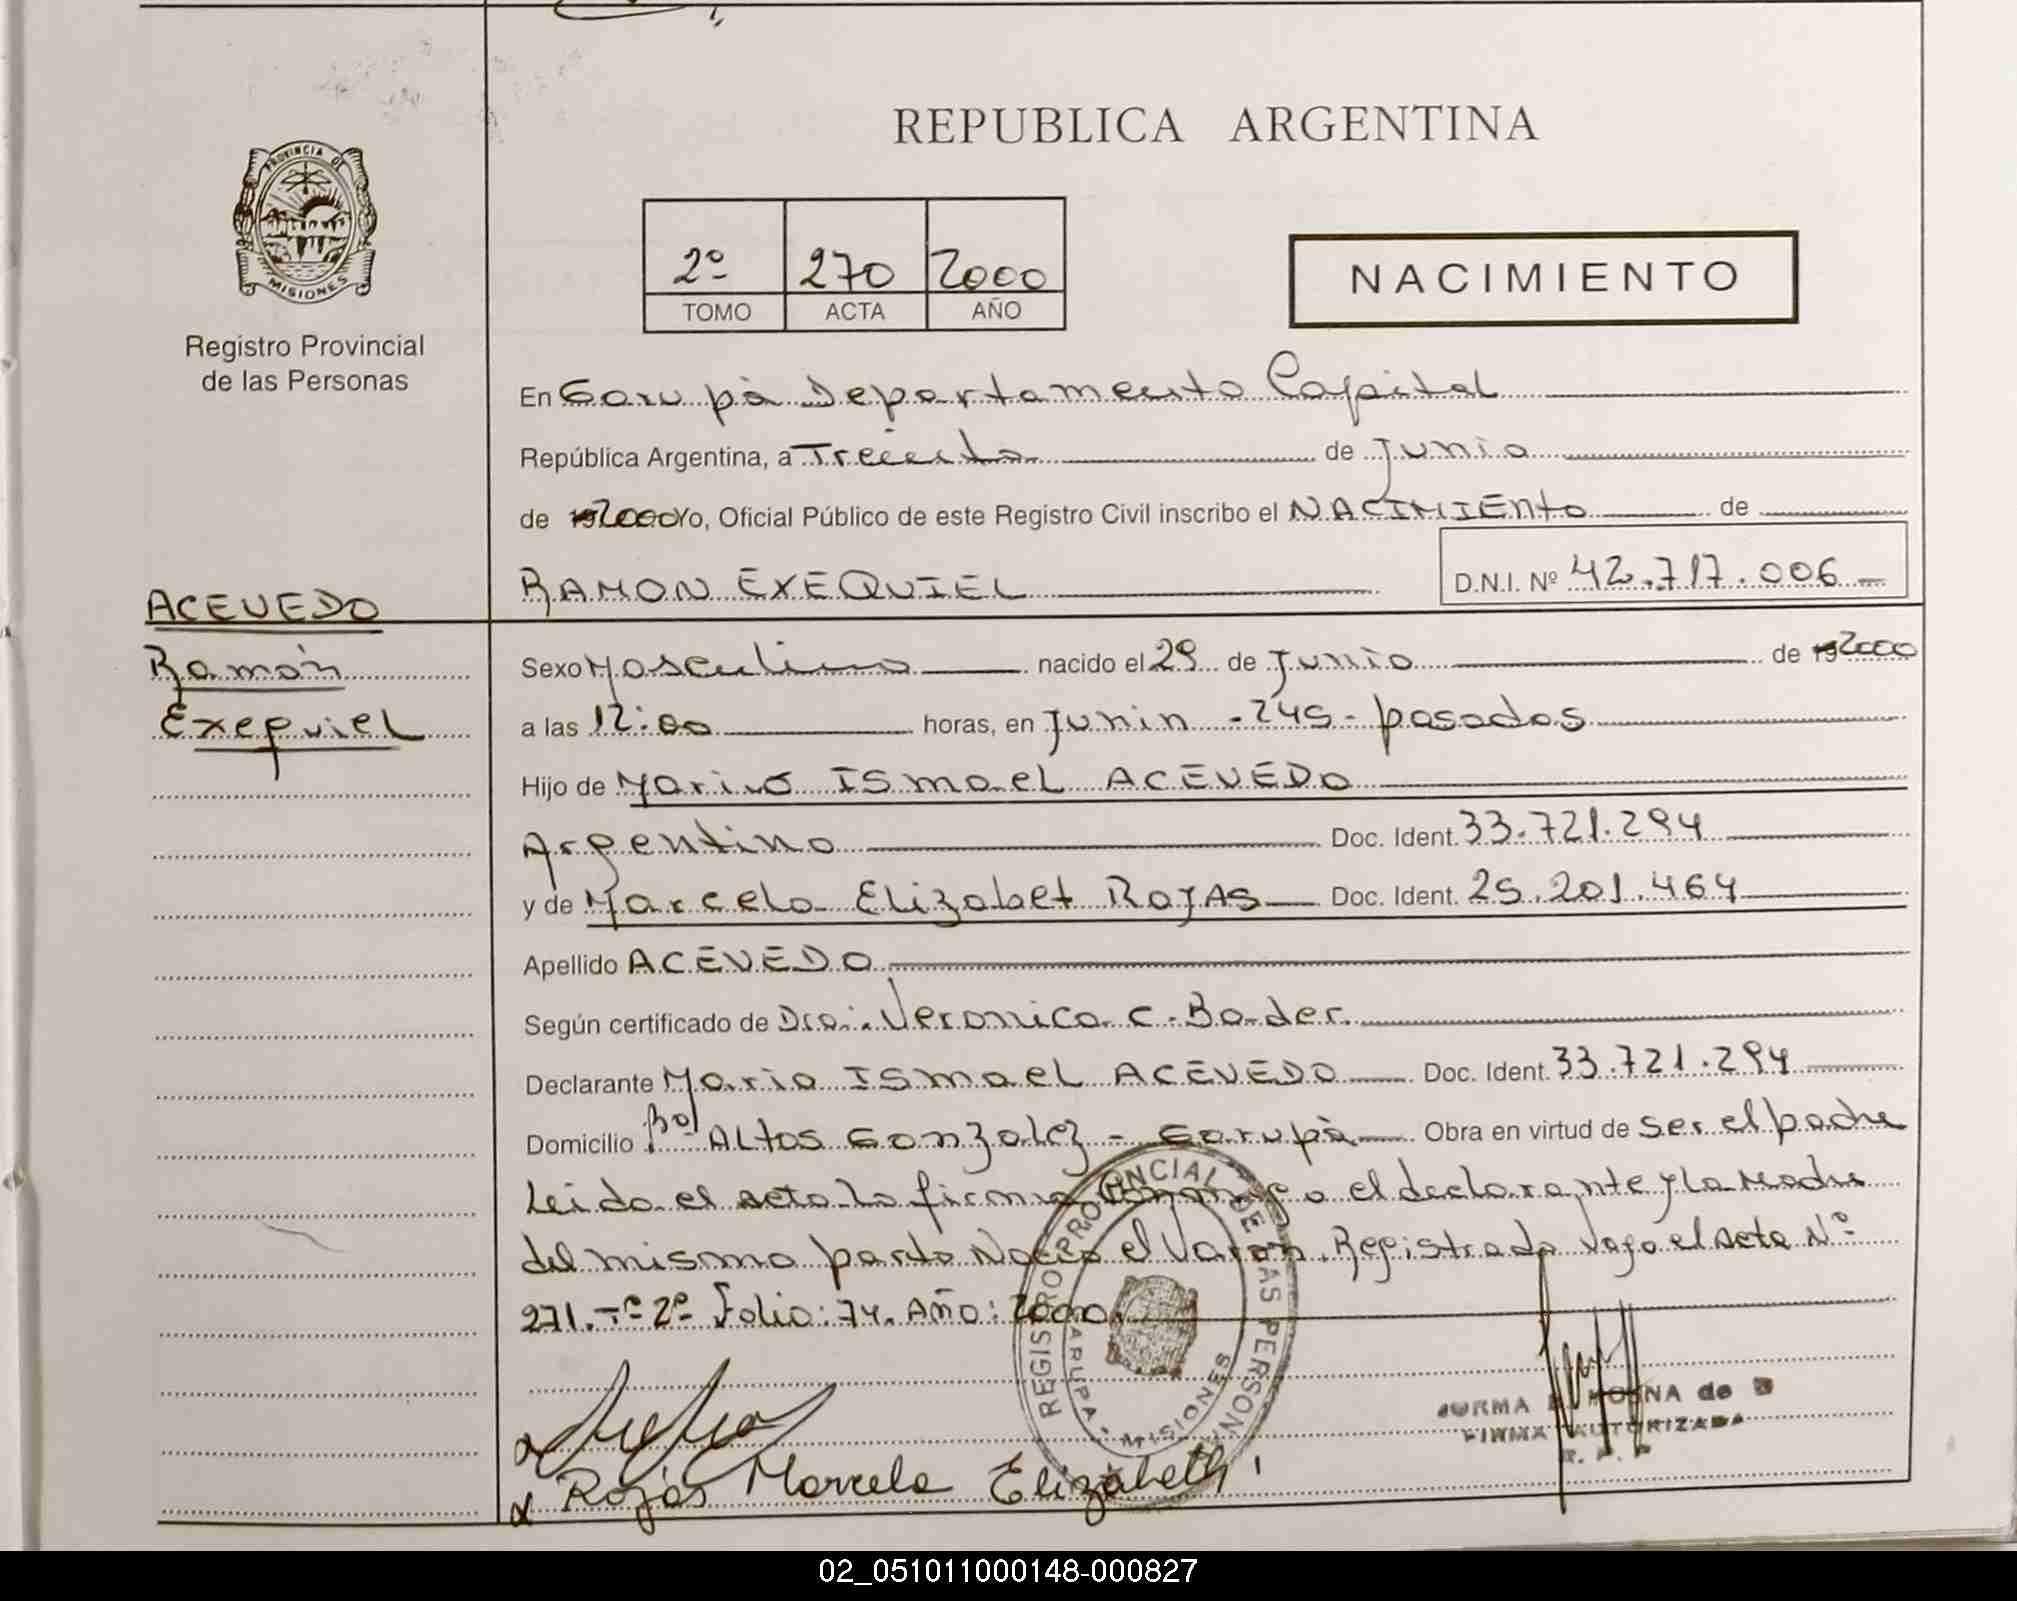 REPUBLICA ARGENTINA
PROVINCIA DE
MISIONES
Registro Provincial
de las Personas
2º 270 2000
TOMO ACTA AÑO
NACIMIENTO
En Garupà Departamento Capital
República Argentina, a Treinta de Junio
de 2000 Yo, Oficial Público de este Registro Civil inscribo el NACIMIENto de
RAMON EXEQUIEL D.N.I. Nº 42.717.006
ACEVEDO
Ramón
Exequiel
Sexo Masculino nacido el 29 de Junio de 2000
a las 12:00 horas, en Junin - 245 - posadas
Hijo de Mario Ismael ACEVEDO
Argentino Doc. Ident. 33.721.294
y de Marcela Elizabet ROJAS Doc. Ident. 25.201.464
Apellido ACEVEDO
Según certificado de Dra. Veronica C. Bader
Declarante Mario Ismael ACEVEDO Doc. Ident. 33.721.294
Domicilio Bº ALtos Gonzalez - Garupà Obra en virtud de ser el padre
Leido el acta la firma conmigo el declarante y La Madre
del mismo parto Nacio el Varon Registrado vajo el acta Nº
271. Tº 2º Folio: 74. Año: 2000.
REGISTRO PROVINCIAL DE LAS PERSONAS
GARUPA MISIONES
NORMA MOLINA de B
FIRMA AUTORIZADA
R. P. P
Rojas Marcela Elizabeth
02_051011000148-000827